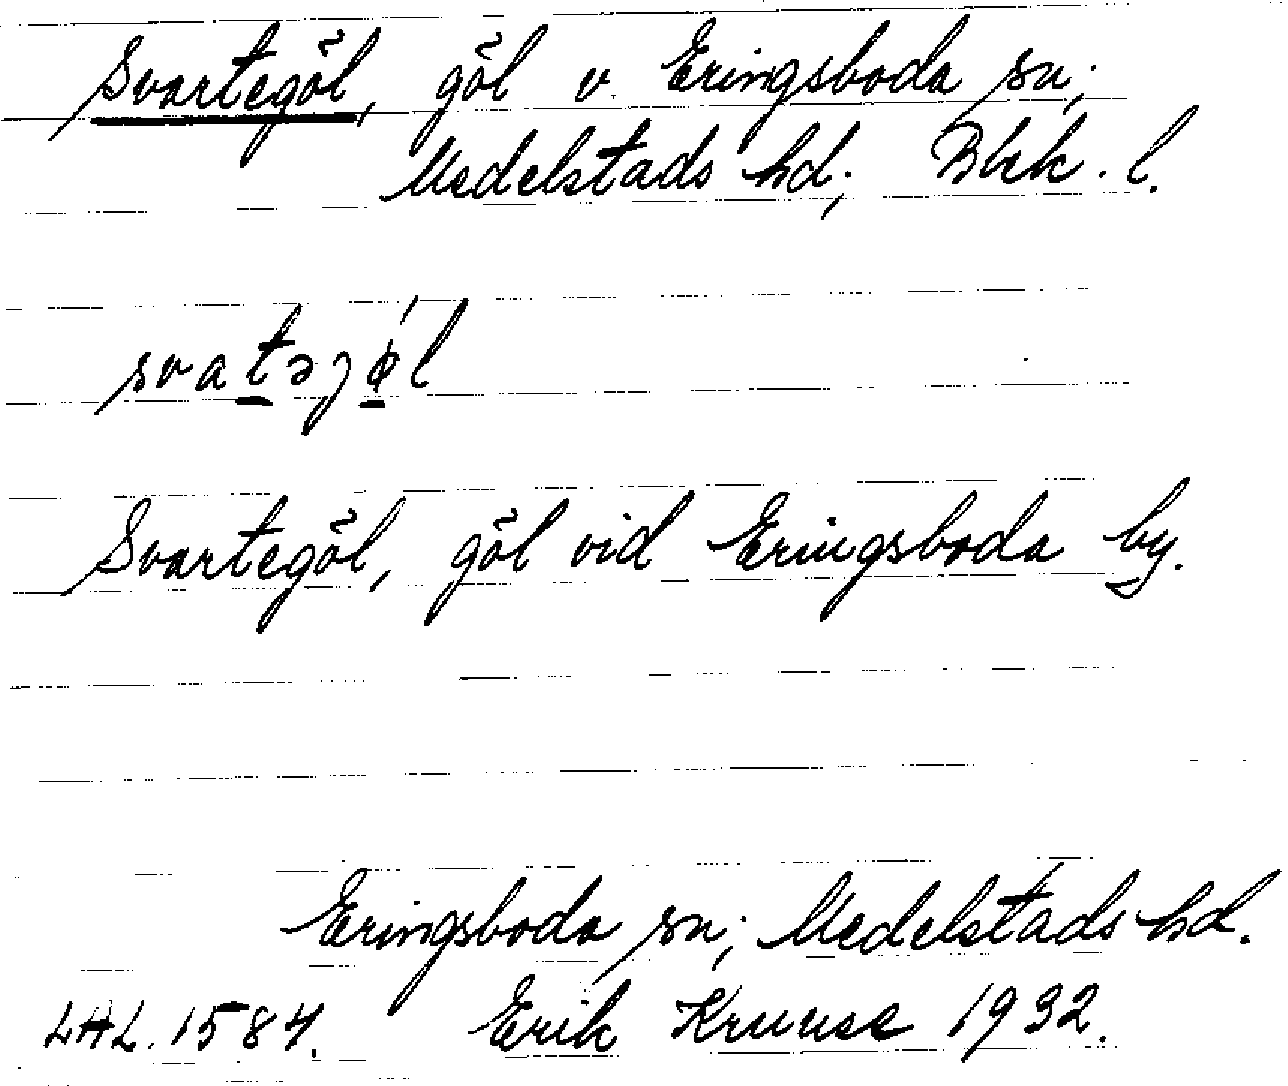 Svartegöl, göl v. Eringsboda sn;
Medelstads hd; Blek. l.
svatəʒǿl
Svartegöl, göl vid Eringsboda by.
Eringsboda sn; Medelstads hd.
LAL. 1584. Erik Kruuse 1932.